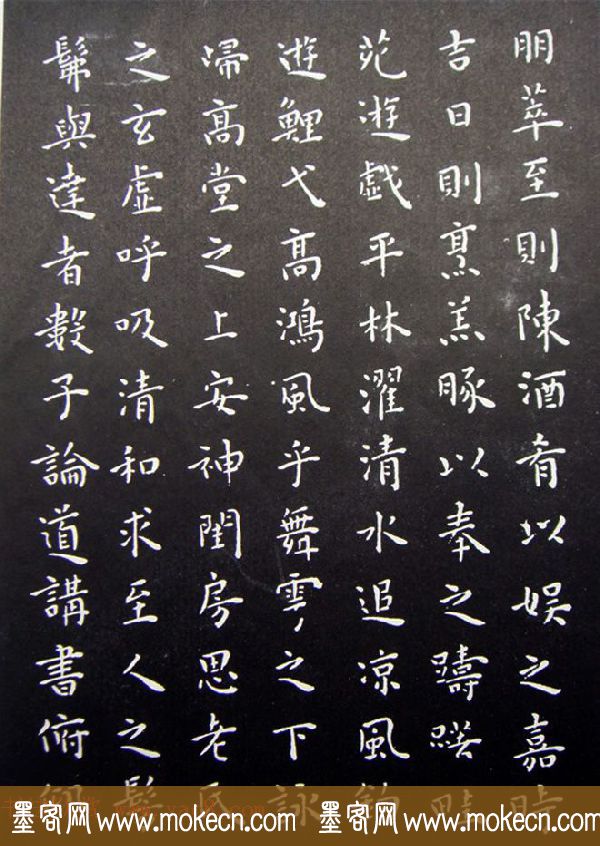 朋萃至則陳酒肴以娱之嘉時
吉日則烹羔豚以奉之躊躇畦
苑遊戯平林濯清水追凉風釣
遊鯉弋高鴻風乎舞雩之下詠
歸高堂之上安神閨房思老氏
之玄虛呼吸清和求至人之髣
髴與達者數子論道講書俯仰
墨客网 www.mokecn.com 墨客网 www.mokecn.com